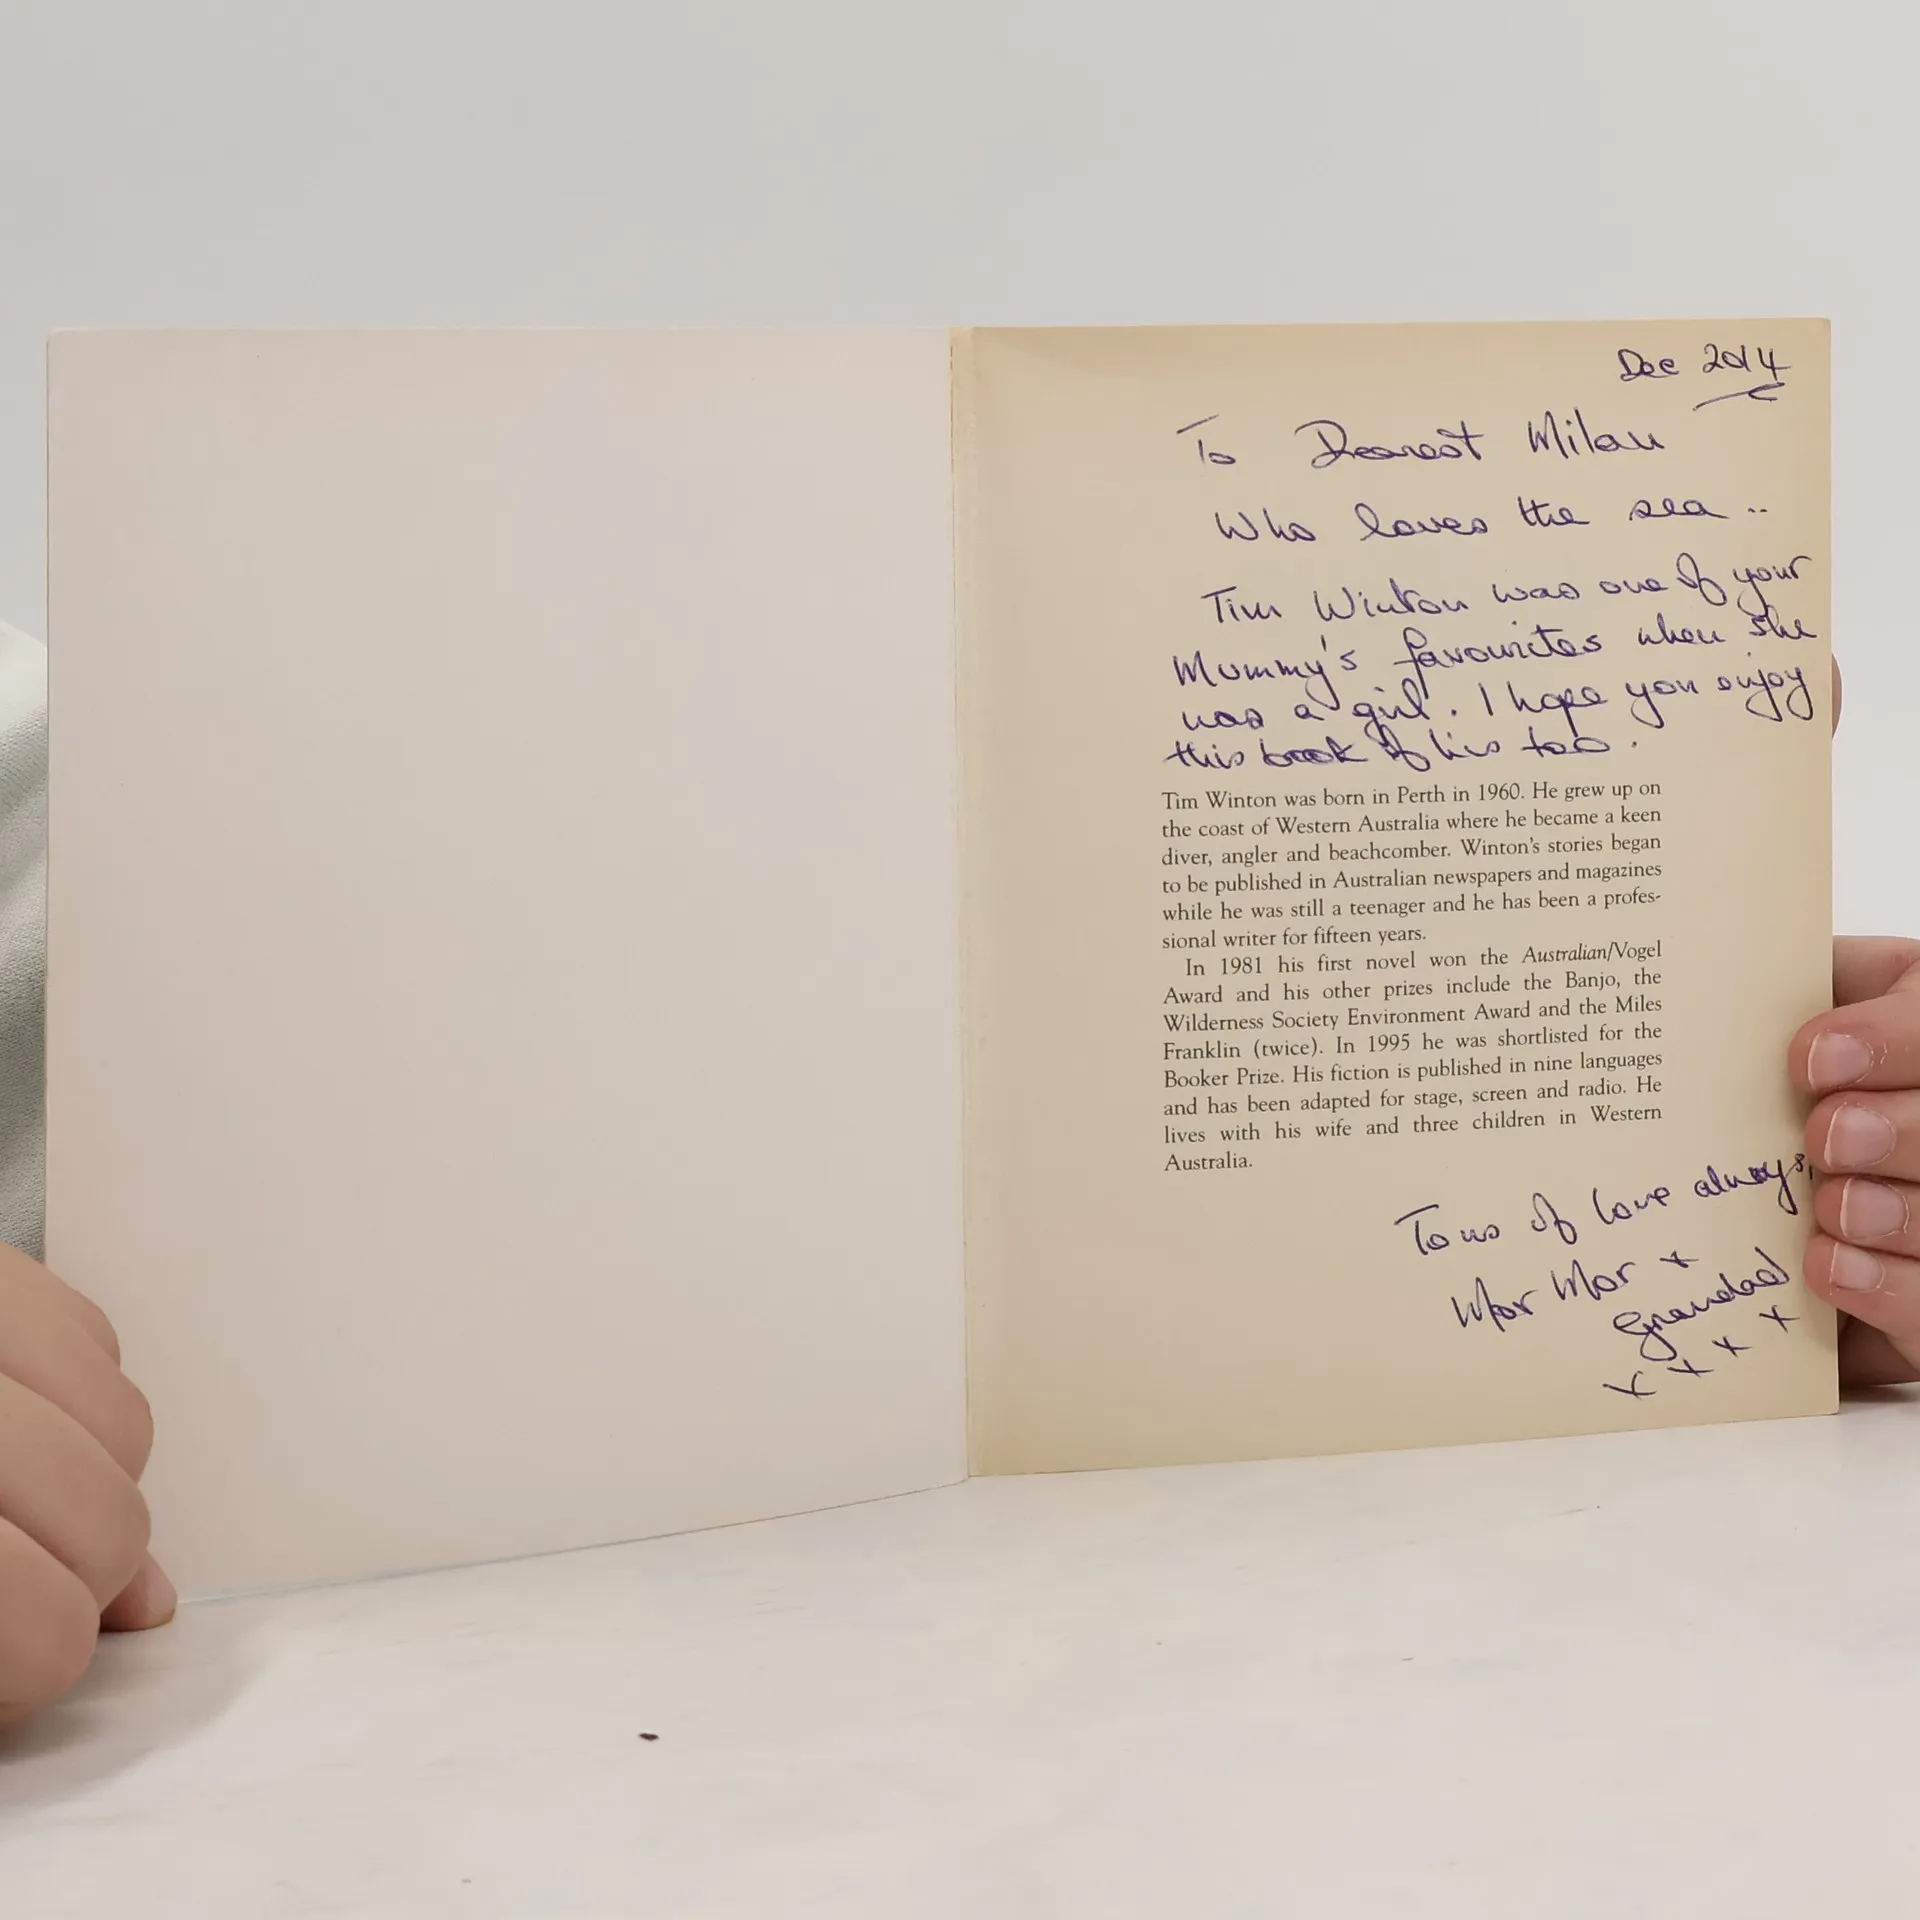 Dec 2014
To Dearest Milan
Who loves the sea ..
Tim Winton was one of your
Mummy's favourites when she
was a girl. I hope you enjoy
this book of his too.
Tim Winton was born in Perth in 1960. He grew up on
the coast of Western Australia where he became a keen
diver, angler and beachcomber. Winton's stories began
to be published in Australian newspapers and magazines
while he was still a teenager and he has been a profes-
sional writer for fifteen years.
In 1981 his first novel won the Australian/Vogel
Award and his other prizes include the Banjo, the
Wilderness Society Environment Award and the Miles
Franklin (twice). In 1995 he was shortlisted for the
Booker Prize. His fiction is published in nine languages
and has been adapted for stage, screen and radio. He
lives with his wife and three children in Western
Australia.
Tons of love always,
Mor Mor x
Grandad
x x x x